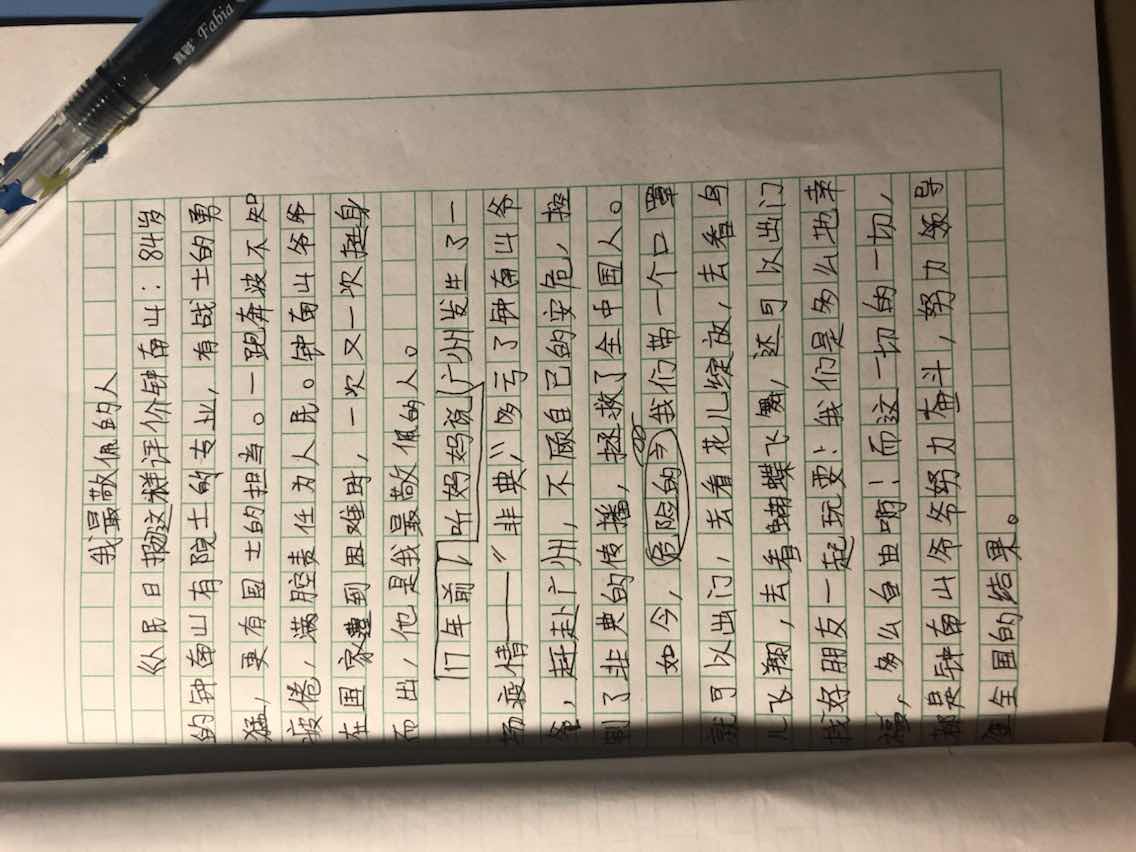 我最敬佩的人
《人民日报》这样评价钟南山：84岁
的钟南山有院士的专业，有战士的勇
猛，更有国士的担当。一跑奔波不知
疲倦，满腔责任为人民。钟南山爷爷
在国家遭到困难时，一次又一次挺身
而出，他是我最敬佩的人。
17年前，听妈妈说广州发生了一
场疫情——“非典”，多亏了钟南山爷
爷，赶赴广州，不顾自己的安危，控
制了非典的传播，拯救了全中国人。
如今，危险的 我们带一个口罩
就可以出门，去看花儿绽放，去看鸟
儿飞翔，去看蝴蝶飞舞，还可以出门
找好朋友一起玩耍！我们是多么地幸
福，多么自由啊！而这一切的一切，
都是钟南山爷爷努力奋斗，努力领导
全国的结果。
真彩 Fabia